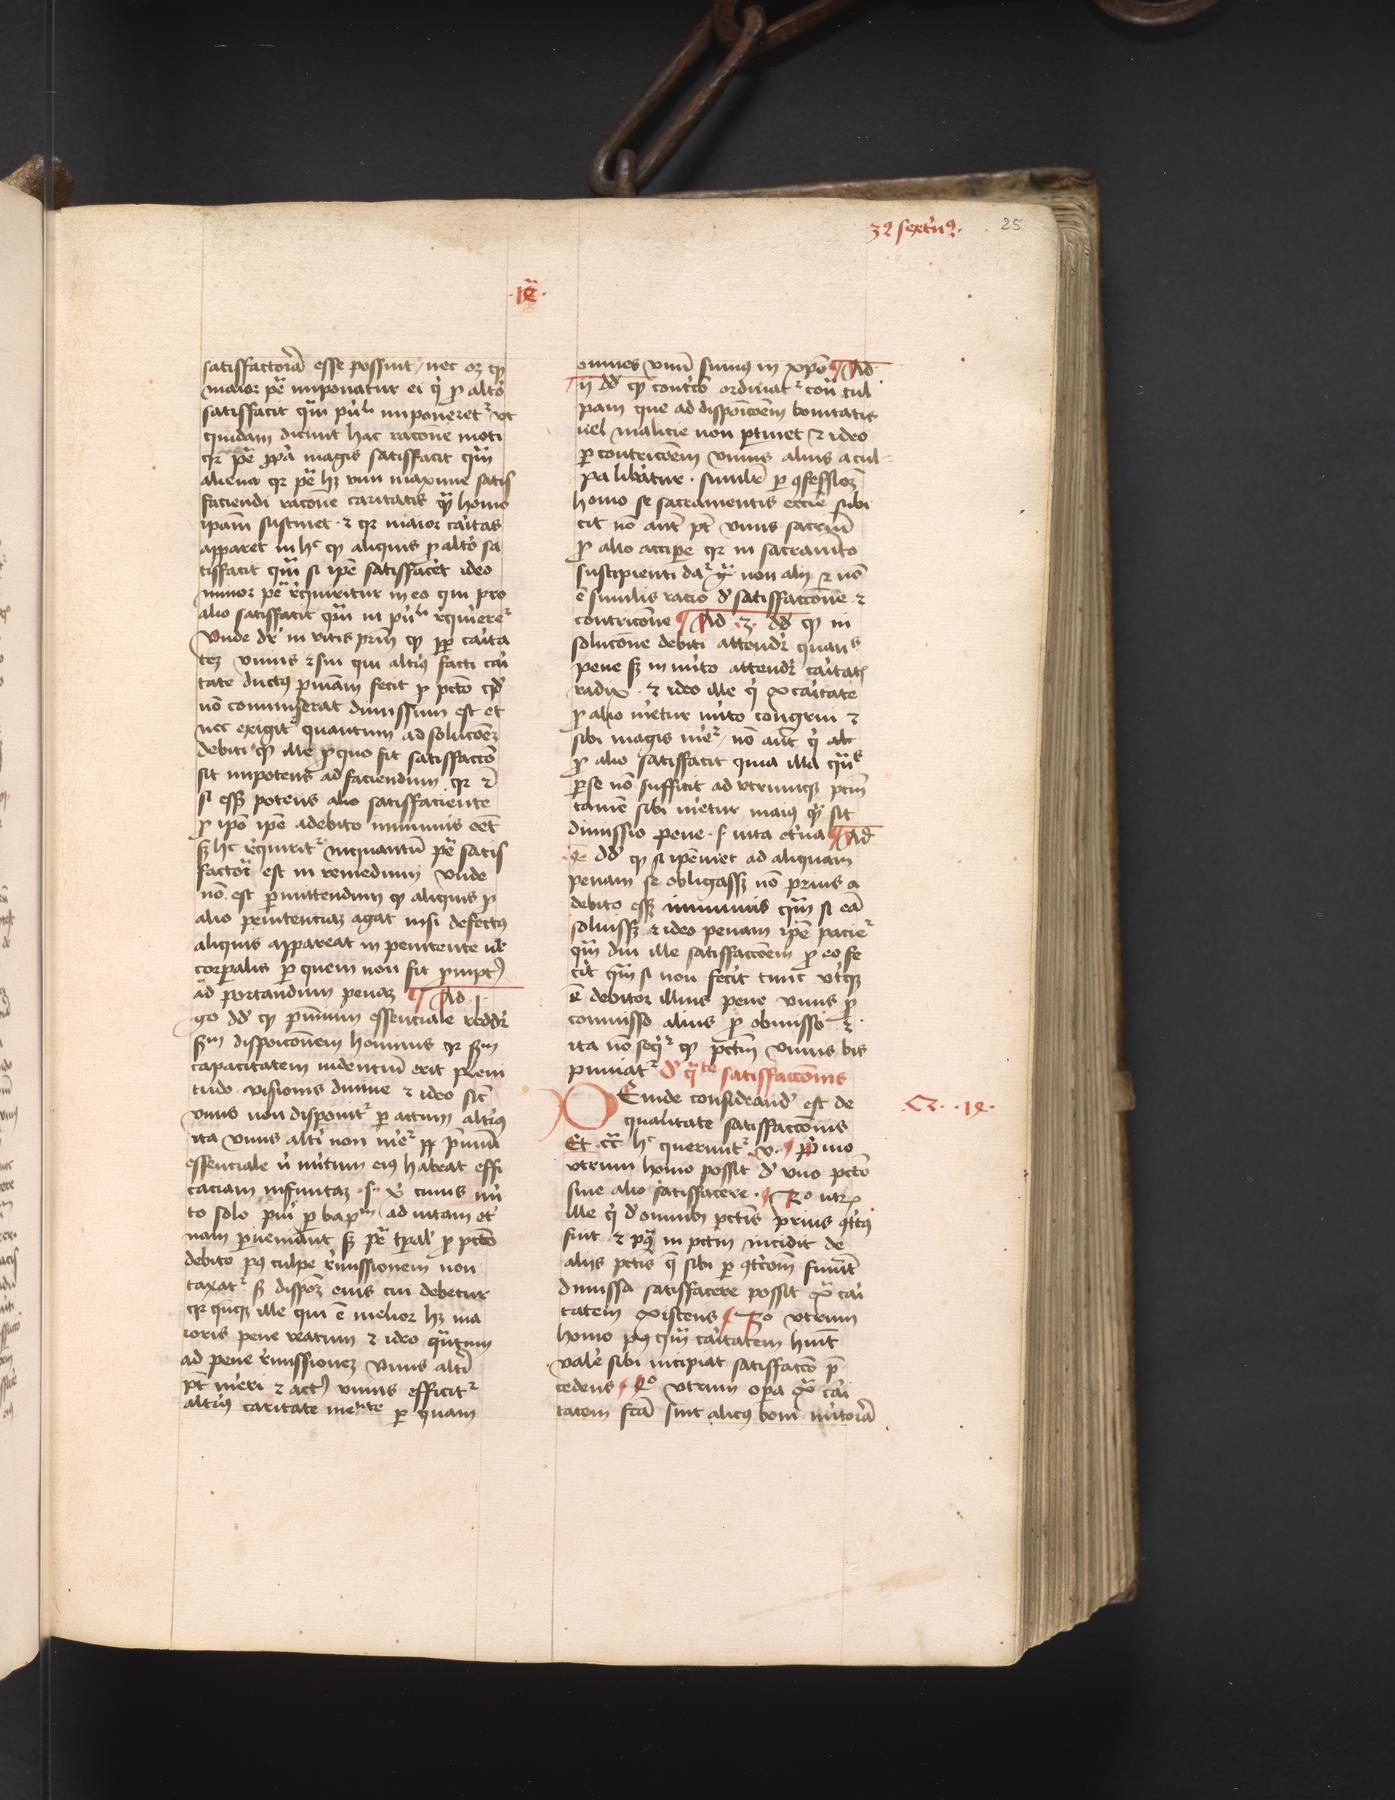 32 sextus. 25
·1ꝫ·
satisfactoria esse possint / nec oꝫ qꝫ
maior pēa imponatur ei qͥ ꝓ alio
satisfacit qͣm pⁿͨⁱ imponeretʳ ut
quidam dicunt hac racone moti
qr pēa ꝓpa magis satisfacit qͣm
aliena qr pēa hꝫ vim maxime satis
faciendi racone caritatis qͣ homo
ipam sustinet · ⁊ qr maior caritas
apparet in hͨ qꝫ aliquis ꝓ alio sa
tisfacit qͣm si ipe satisfacēt ideo
minor pēa requiritur in eo qui pro
alio satisfacit qͣm in requireretʳ
Vnde dr in vitis prm qꝫ ꝓpt carita
teꝫ vnius qui alterius facti cari
tate ductus pniam fecit ꝓ pcto qd
nō commiserat dimissum est et
nec exigitʳ quantum ad soluconeꝫ
debiti qꝫ ille ꝓ quo fit satisfacco
sit impotens ad faciendum qr ⁊
si esset potens alio satisfaciente
ꝓ ipo ipe a debito immunis eēt
sꝫ hͨ requiritʳ inquantū pēa satis
factoria est in remedium vnde
nō est pmittendum qꝫ aliquis ꝓ
alio penitenciaꝫ agat nisi defectus
aliquis appareat in penitente vel
corporalis p quem non sit prompt9
ad portandum penaꝫ ¶ Ad ·1·
go dd qꝫ pmium essenciale reddr
sm disposiconem hominis qr sm
capacitatem videntiū erit pleni
tudo visionis diuine ⁊ ideo sicͭ
vnus non disponitʳ p actum alterius
ita vnus alti non meretʳ pmiū
essenciale nisi meritum eius habeat effi
caciam infinitaꝫ · s · x cuius meri
to solo pueri p bap ad vitam et
nam perueniunt sꝫ pēa tpalis ꝓ pcto
debito post culpe remissionem non
taxatʳ sm disposoꝫ eius cui debetur
qr quandoqꝫ ille qui ē melior hꝫ ma
ioris pene reatum ⁊ ideo qͣntum
ad pene remissioneꝫ vnus alti
pt mereri ⁊ actus vnius efficitʳ
alterius caritate mediante p quam
omnes vnum sumus in xpo ¶ Ad
ij dd qꝫ contrico ordinatʳ contra cul
pam que ad disposiconem bonitatis
uel malicie non ptinet ⁊ ideo
p contriconem vnius alius a cul
pa liberatur · similiter p ꝯfessionꝫ
homo se sacramentis ecclie subi
cit nō aut pt vnus sacrm
ꝓ alio accipe qr in sacramento
suscipienti daʳ gra non alij ⁊ nō
ē similis racio de satisfaccone ⁊
contricone ¶ Ad ·3· dd qꝫ in
solucone debiti attendr quantitas
pene sꝫ in merito attendr caritatis
radix · ⁊ ideo ille qͥ ex caritate
ꝓ alio meretur merito congrui ⁊
sibi magis meretʳ / nō aut qͥ
ꝓ alio satisfacit quia illa quantitas
p se nō sufficit ad vtrumqꝫ pctm
tamē sibi meretur maius qͣm sit
dimissio pene · s vita eterna ¶ Ad
·4· dd qꝫ si ipemet ad aliquam
penam se obligasset nō prius a
debito esset immunis qͣm si eā
soluisset ⁊ ideo penam ipe pacieʳ
qͣm diu ille satisfacconem ꝓ eo fe
cit qͣm si non fecit tunc vterqꝫ
ē debitor illius pene vnus ꝓ
commisso alius ꝓ obmisso ⁊
ita nō seqͥʳ qꝫ pctm vnius bis
puniatʳ de qͣlitate satisfacconis
Einde considerandum est de
qualitate satisfacconis
Et circa hͨ querunt v · primo
vtrum homo possit de vno pcto
sine alio satisfacere · 2o vtrum
ille qͥ de omnibus pctis prius ꝯtritus
fuit ⁊ postea in pctm incidit de
alijs pctis que sibi p ꝯtriconem fuerunt
dimissa satisfacere possit extra cari
tatem existens 3o vtrum
homo postqͣm caritatem habuerit
valere sibi incipiat satisfacco pre
cedens · 4o vtrum opera extra cari
tatem facta sint alicuius boni meritoria
·Q· ·14·